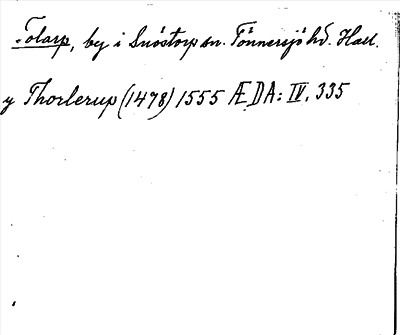 Tolarp, by i Snöstorp sn. Tönnersjö hd. Hall.
y Thorlerup (1478) 1555 ÆDA: IV, 335